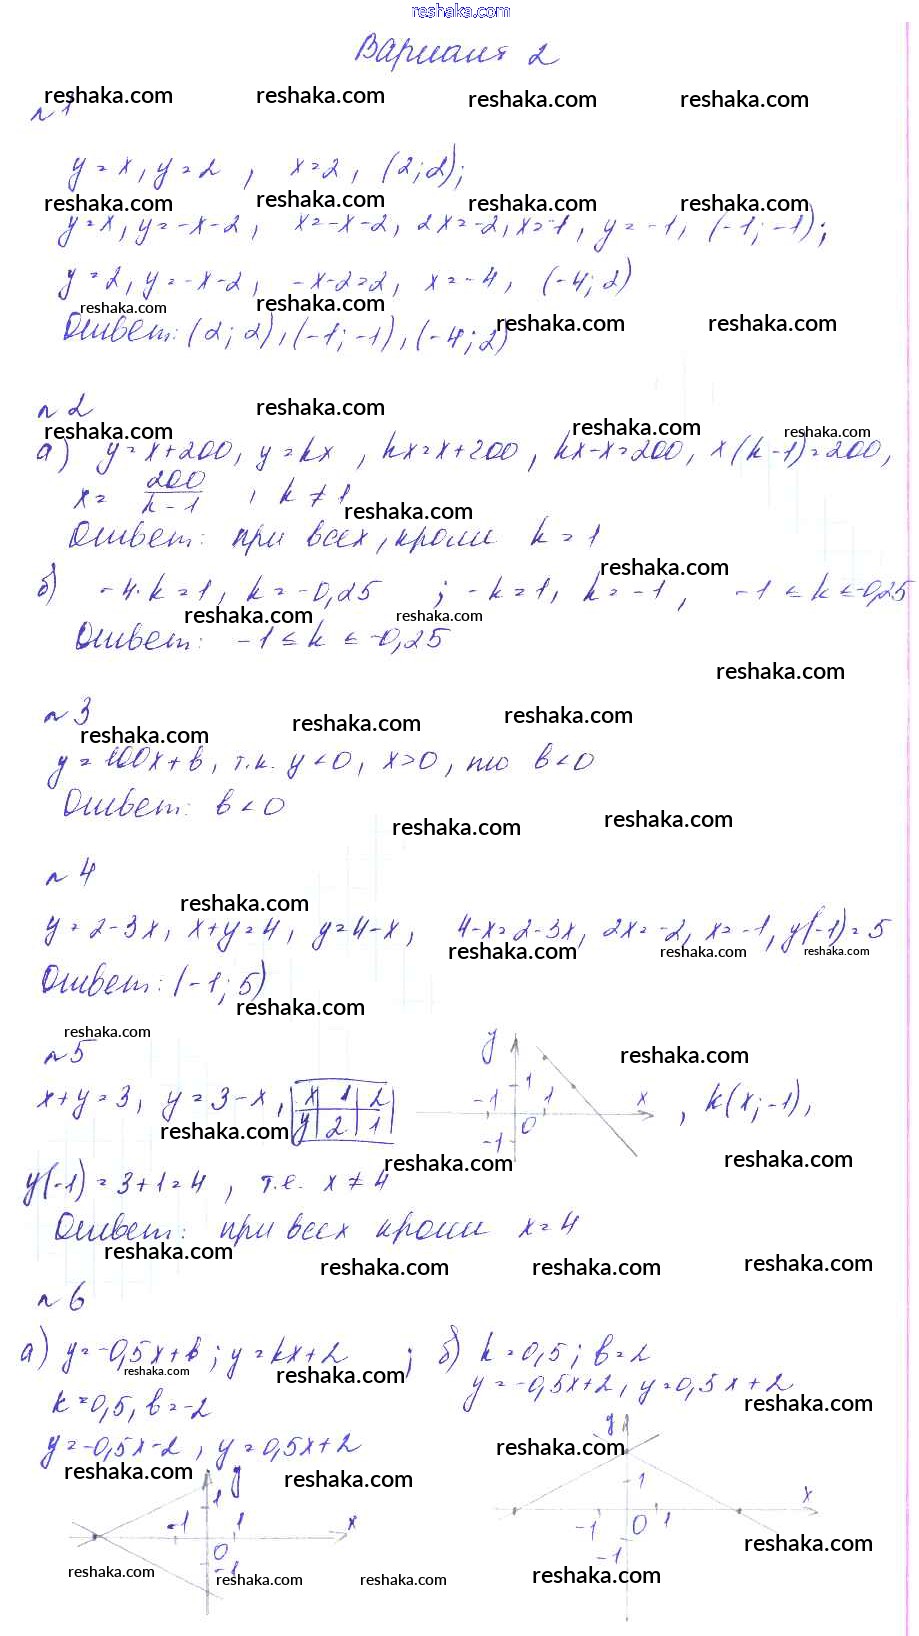 reshaka.com
Вариант 2
reshaka.com reshaka.com reshaka.com reshaka.com
№1
y = x, y = 2, x = 2, (2; 2);
reshaka.com reshaka.com reshaka.com reshaka.com
y = x, y = -x-2, x = -x-2, 2x = -2, x = -1, y = -1, (-1; -1);
y = 2, y = -x-2, -x-2 = 2, x = -4, (-4; 2)
reshaka.com reshaka.com
Ответ: (2; 2), (-1; -1), (-4; 2)
reshaka.com reshaka.com
№2
reshaka.com
reshaka.com reshaka.com reshaka.com
а) y = x+200, y = kx, kx = x+200, kx-x = 200, x(k-1) = 200,
x = 200/(k-1), k ≠ 1
reshaka.com
Ответ: при всех, кроме k = 1
reshaka.com
б) -4·k = 1, k = -0,25; -k = 1, k = -1, -1 ≤ k ≤ -0,25
reshaka.com reshaka.com
Ответ: -1 ≤ k ≤ -0,25
reshaka.com
№3
reshaka.com reshaka.com reshaka.com
y = 100x + b, т.к. y < 0, x > 0, то b < 0
Ответ: b < 0
reshaka.com reshaka.com
№4
reshaka.com
y = 2-3x, x+y = 4, y = 4-x, 4-x = 2-3x, 2x = -2, x = -1, y(-1) = 5
reshaka.com reshaka.com reshaka.com
Ответ: (-1; 5)
reshaka.com
reshaka.com
№5
reshaka.com
x+y = 3, y = 3-x,
x 1 2
y 2 1
y
1
-1 1 x
0
-1
, k(x; -1),
reshaka.com reshaka.com reshaka.com
y(-1) = 3+1 = 4, т.е. x ≠ 4
Ответ: при всех кроме x = 4
reshaka.com reshaka.com reshaka.com reshaka.com
№6
а) y = -0,5x+b; y = kx+2;
reshaka.com reshaka.com
k = 0,5, b = -2
y = -0,5x-2, y = 0,5x+2
reshaka.com reshaka.com
y
1
-1 1 x
0
-1
reshaka.com reshaka.com reshaka.com
б) k = 0,5; b = 2
y = -0,5x+2, y = 0,5x+2
reshaka.com
y
reshaka.com
1
x
-1 0 1
-1
reshaka.com
reshaka.com